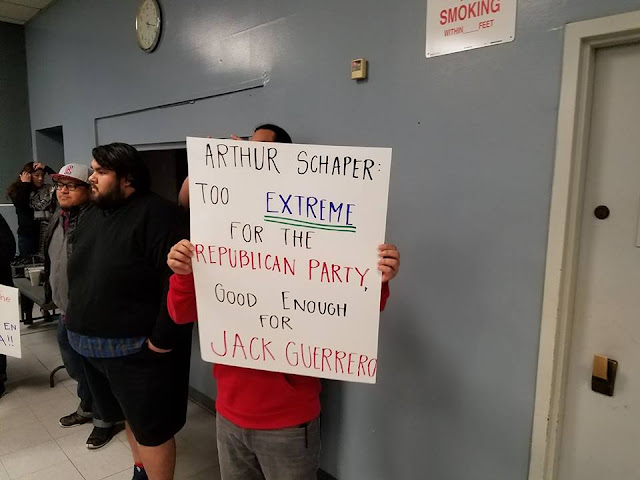 SMOKING
WITHIN___FEET
ARTHUR SCHAPER:
TOO EXTREME
FOR THE
REPUBLICAN PARTY,
GOOD ENOUGH
FOR
JACK GUERRERO
he
EN
A!!